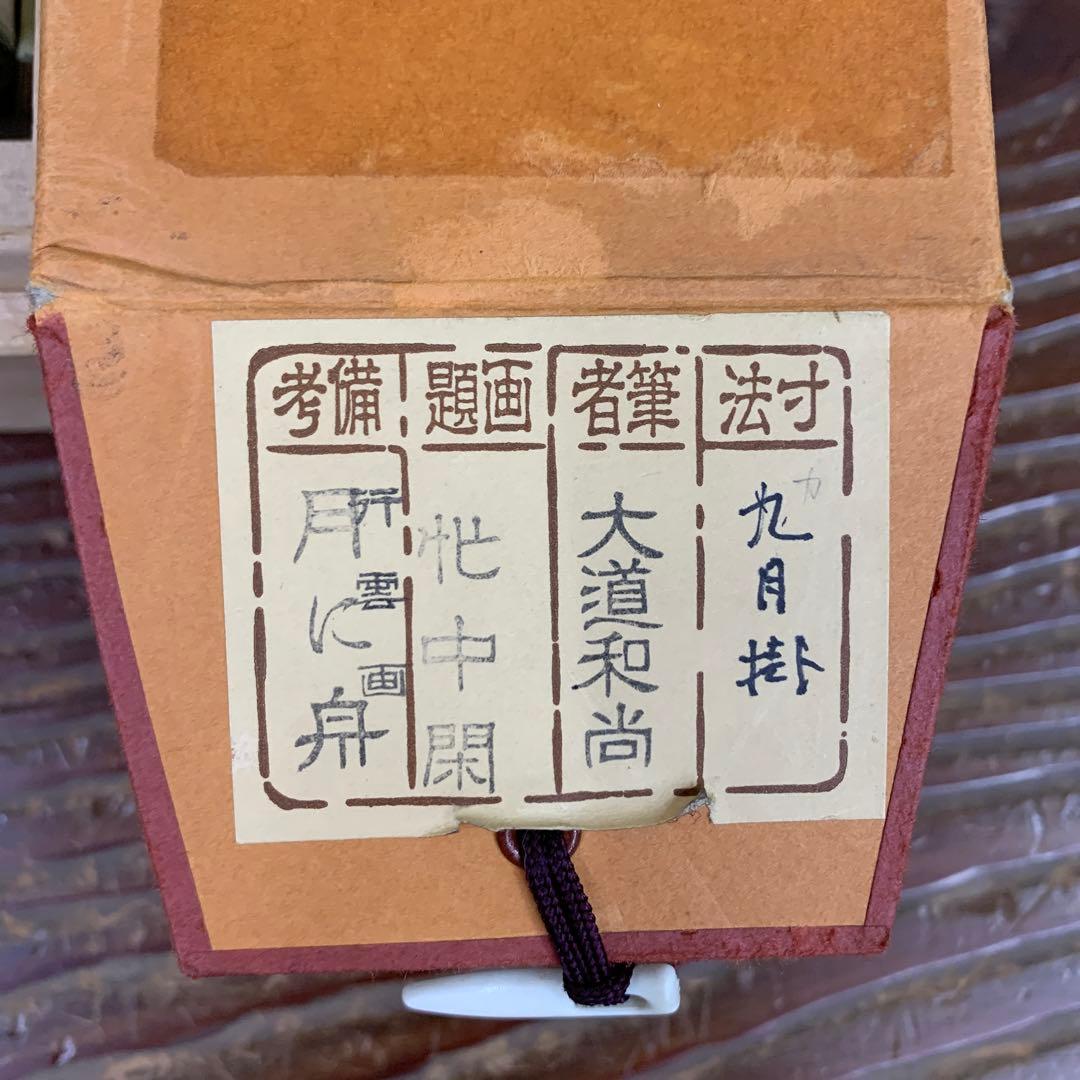 寸法
カ
九月掛
筆者
大道和尚
画題
忙中閑
備考
行雲画
月に舟